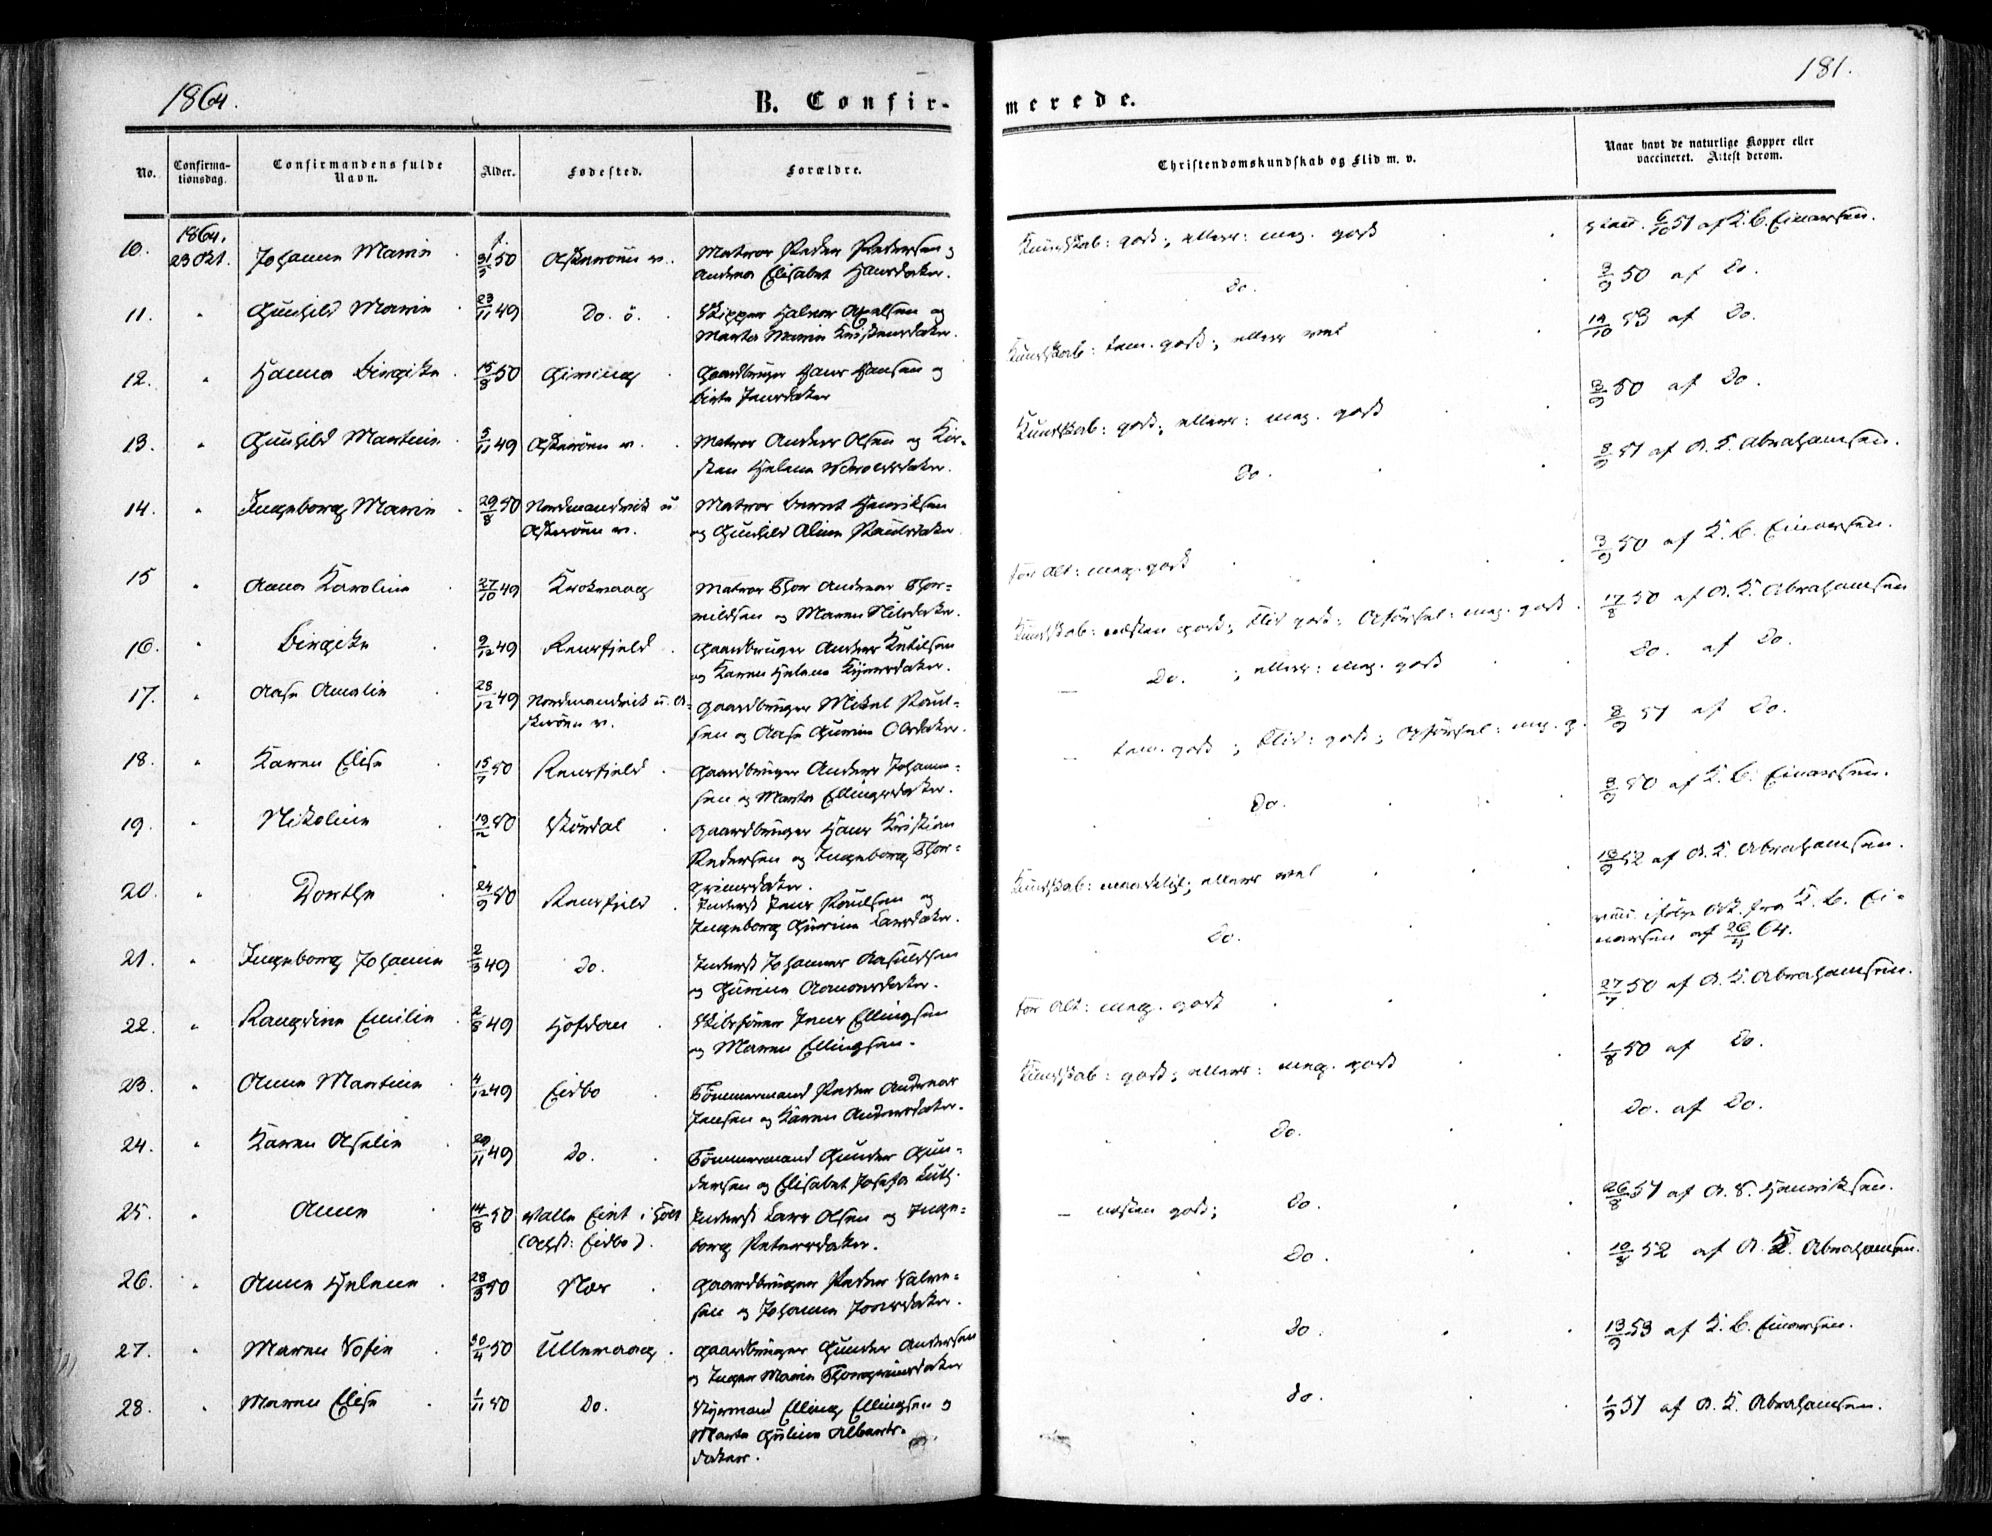 1864.
B. Confir-
merede.
181.
No.
Confirma-
tionsdag.
Confirmandens fulde
Navn.
Alder.
Fødested.
Forældre.
Christendomskundskab og Flid m. v.
Naar havt de naturlige Kopper eller
vaccineret. Attest derom.
10. 1864. 23 Okt. Johanne Marie 31/5 50 Askerøen v. Matros Peder Pedersen og
Andrea Elisabet Hansdater.
Kundskab: godt; ellers: meg. godt 6/10 51 af K. C. Einarsen.
11. " Gunhild Marie 23/11 49 Do. ö. Skipper Halvor Axelsen og
Marta Maria Kristensdater.
Do. 3/9 50 af Do.
12. " Hanna Birgite 15/8 50 Giming Gaardbruger Hans Hansen og
Birte Jensdater
Kundskab: tem. godt; ellers vel 14/10 53 af Do.
13. " Gunhild Martine 5/11 49 Askerøen v. Matros Anders Olsen og Kir-
sten Helene
Kundskab: godt; ellers: meg. godt 3/9 50 af Do.
14. " Ingeborg Marie 29/8 50 Nordmandvik u
Askerøen v. Matros Bernt Henriksen
og Gunhild Aline Paulsdater
Do. 8/9 51 af A. K. Abrahamsen.
15 " Anna Karoline 27/10 49 Krokvaag Matros Thor Andreas Thor-
vildsen og Maren Nilsdater.
For Alt: meg. godt 3/9 50 af K. C. Einarsen.
16. " Birgite 9/12 49 Rensfjeld Gaardbruger Anders Ketilsen
og Karen Helene
Kundskab: næsten godt; Flid godt; Opførsel: meg. godt 17/8 50 af A. K. Abrahamsen
17. " Aase Amalie 28/12 49 Nordmandvik u. A-
skerøen v. Gaardbruger Mikal Paul-
sen og Aase Gurine Olsdater.
— Do. ; ellers: meg. godt Do. af Do.
18. " Karen Elise 15/7 50 Rensfjeld Gaardbruger Anders Johanne-
sen og Marta Ellingsdater.
— tem. godt; Flid: godt; Opførsel: meg. g. 8/9 51 af Do.
19. " Nikoline 19/2 50 Skördal Gaardbruger Hans Kristian
Pedersen og Ingeborg Thor-
grimsdater.
Do. 3/9 50 af K. C. Einarsen.
20. " Dorthe 24/9 50 Rensfjeld Inderst Jens Paulsen og
Ingeborg Gurine Larsdater.
Kundskab: maadelig; ellers vel 13/9 52 af A. K. Abrahamsen.
21. " Ingeborg Johanne 2/3 49 Do. Inderst Johannes Aasuldsen
og Gurine Aanonsdater.
Do. ifølge Att. fra K. C. Ei-
narsen af 26/11 64.
22. " Ragndine Emilie 2/8 49 Hofdan Skibsfører Jens Ellingsen
og Maren Ellingsen.
For Alt: meg. godt 27/7 50 af A. K. Abrahamsen.
23. " Anne Martine 4/12 49 Eidbo Tømmermand Peder Andreas
Jensen og Karen Andersdater.
Kundskab: godt; ellers: meg. godt 1/8 50 af Do.
24. " Karen Aselie 29/11 49 Do. Tømmermand Gunder Gun-
dersen og Elisabet Josefa
Do. Do. af Do.
25. " Anne 14/8 50 Valle Eiet i Holt
(Opst: Eidbo). Inderst Lars Olsen og Inge-
borg Petersdater.
— næsten godt; Do. 26/8 51 af A. T. Henriksen.
26. " Anne Helene 28/3 50 Næs Gaardbruger Peder Salve-
sen og Johanne Jonsdater.
Do. 10/8 52 af A. K. Abrahamsen.
27. " Maren Sofie 30/4 50 Ullevaag Gaardbruger Gunder Andersen
og Inger Marie Thorgrimsdater
Do. 13/9 53 af K. C. Einarsen.
28. " Maren Elise 1/11 50 Do. Styrmand Elling Ellingsen og
Marte Guline Alberts-
dater.
Do. 1/9 51 af A. K. Abrahamsen.